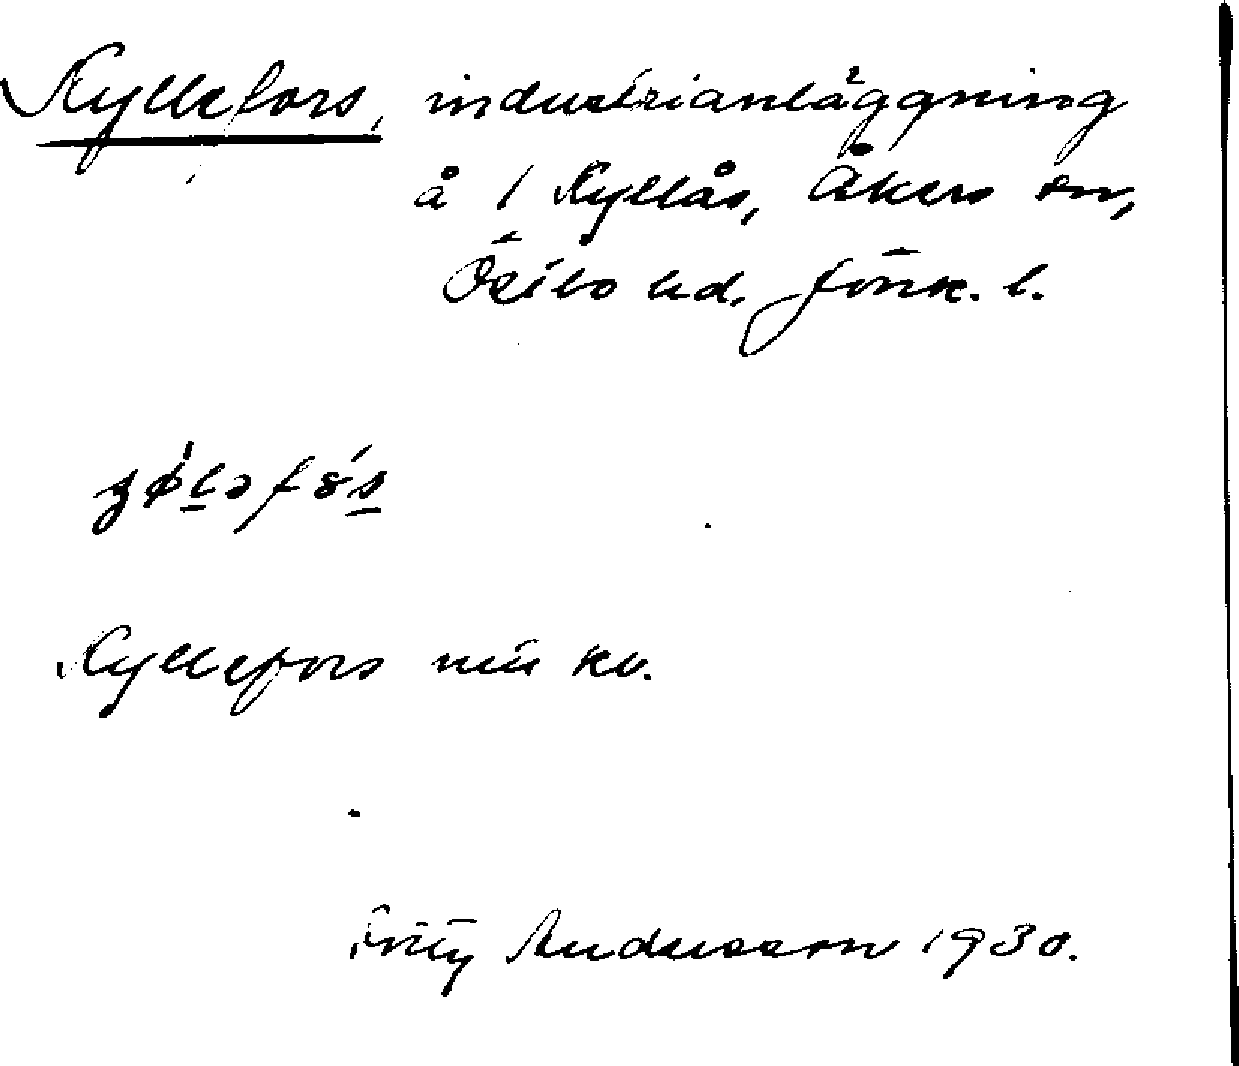 Kyllefors, industrianläggning
å 1 Kyllås, Åkers sn,
Östbo hd. Jönk. l.
Kyllefors min kv.
Fritz Andersson 1930.